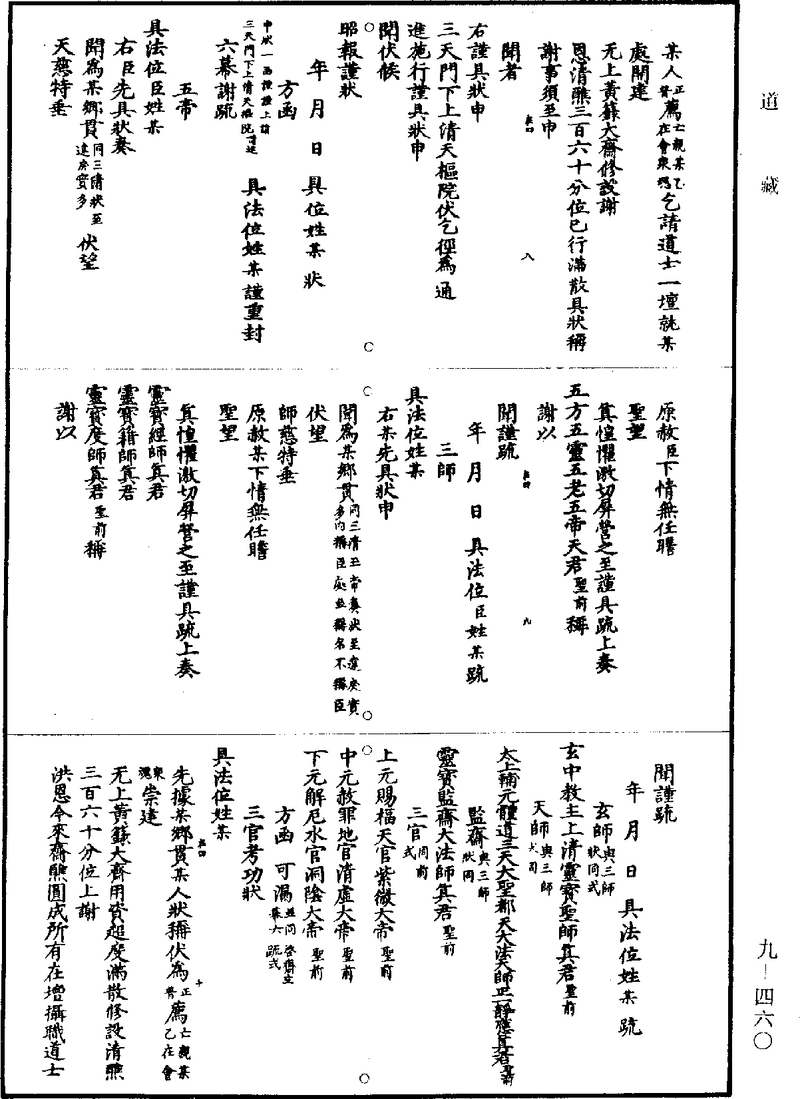 道藏
某人正薦亡親某乙普在會眾魂乞請道士一壇就某
處開建
无上黃籙大齋修設謝
恩清醮三百六十分位已行滿散具狀稱
謝事須至申
聞者
右謹具狀申
三天門下上清天樞院伏乞徑為通
進施行謹具狀申
聞伏候
昭報謹狀
年 月 日 具位姓某 狀
方函
申狀一函謹謹上詣三天門下上清天樞院 具法位姓某謹重封
六幕謝疏
五帝
具法位臣姓某
右臣先具狀奏
聞為某鄉貫同三清狀至違戾實多伏望
天慈特垂
原赦臣下情無任瞻
聖望
眞惶懼激切屏營之至謹具疏上奏
五方五靈五老五帝天君聖前稱
謝以
聞謹疏
年 月 日 具法位臣姓某疏
三師
具法位姓某
右某先具狀申
聞為某鄉貫同三清至違戾實多內稱臣處並稱名不稱臣
伏望
師慈特垂
原赦某下情無任瞻
聖望
眞惶懼激切屏營之至謹具疏上奏
靈寶經師眞君
靈寶籍師眞君
靈寶度師眞君聖前稱
謝以
聞謹疏
年 月 日 具法位姓某 疏
玄師與三師狀同式
玄中教主上清靈寶聖師眞君聖前
天師與三師
太上輔元體道三天大聖都天大法天師正一靜應眞君聖前
監齋與三師狀同
靈寶監齋大法師眞君聖前
三官同前式
上元賜福天官紫微大帝聖前
中元赦罪地官清虛大帝聖前
下元解厄水官洞陰大帝聖前
方函 可漏
三官考功狀
具法位姓某
先據某鄉貫某人狀稱伏為正薦亡親某乙普在會眾魂崇建
无上黃籙大齋用資超度滿散修設清醮
三百六十分位上謝
洪恩今來齋醮圓成所有在壇攝職道士
九—四六〇